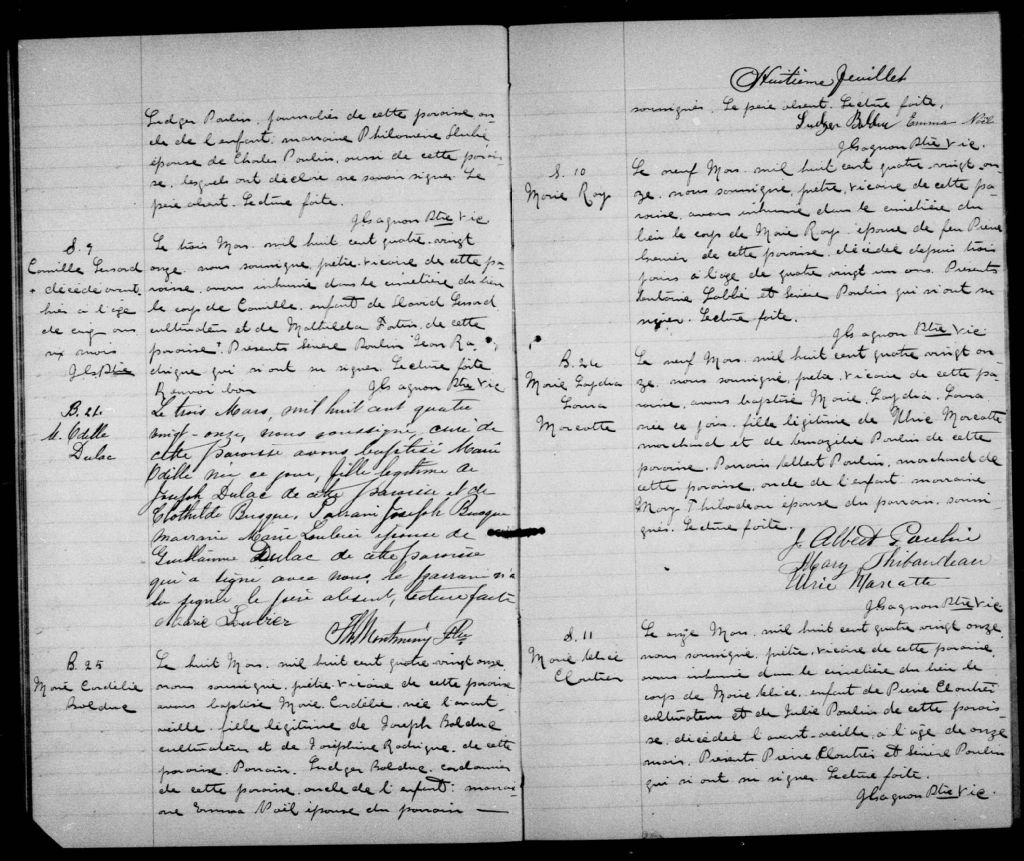 Ludger Poulin, journalier de cette paroisse on-
cle de l'enfant. marraine Philomène
épouse de Charles Poulin, aussi de cette parois-
se, lesquels ont déclaré ne savoir signer. Le
père absent. Lecture faite.
JGagnon Ptre Vic
S. 9
Camille
+ décédé avant
hier à l'âge
de cinq ans
six mois
JG. Ptre
Le trois Mars, mil huit cent quatre-vingt
onze, nous soussigné, prêtre, vicaire de cette pa-
roisse, avons inhumé dans le cimetière du lieu
le corps de Camille, enfant de
cultivateur et de Mathilda de cette
paroisse +. Présents Poulin Jean Ro-
drigue qui n'ont su signer. Lecture faite
Renvoi bon JGagnon Ptre Vic
B. 24
M. Odille
Dulac
Le trois Mars, mil huit cent quatre
vingt-onze, nous soussigné, curé de
cette paroisse avons baptisé Marie
Odille née ce jour, fille légitime de
Joseph Dulac de cette paroisse et de
Clothilde Busque, Parrain Joseph Busque
marraine Marie Loubier épouse de
Guillaume Dulac de cette paroisse
qui a signé avec nous, le parrain n'a
su signer le père absent, lecture faite
Marie Loubier
Th Montminy Ptre
B. 25
Marie Cordélie
Bolduc
Le huit Mars, mil huit cent quatre vingt onze
nous soussigné, prêtre, vicaire de cette paroisse
avons baptisé Marie Cordélie, née l'avant
veille, fille légitime de Joseph Bolduc
cultivateur et de Joséphine Rodrigue, de cette
paroisse. Parrain, Ludger Bolduc, cordonnier
de cette paroisse, oncle de l'enfant; marrai-
ne Emma Noël épouse du parrain
Huitième feuillet
soussignés. Le père absent. Lecture faite.
Ludger Bolduc Emma Noël
JGagnon Ptre Vic.
S. 10
Marie Roy
Le neuf Mars, mil huit cent quatre vingt on-
ze, nous soussigné, prêtre, vicaire de cette pa-
roisse, avons inhumé dans le cimetière du
lieu le corps de Marie Roy, épouse de feu Pierre
de cette paroisse, décédée depuis trois
jours à l'âge de quatre vingt un ans. Présents
et Poulin qui n'ont su
signer. Lecture faite.
JGagnon Ptre Vic
B. 26
Marie Laydia
Lorra
Morcotte
Le neuf Mars, mil huit cent quatre vingt on-
ze, nous soussigné, prêtre, vicaire de cette pa-
roisse, avons baptisé Marie, Laydia, Lorra
née ce jour, fille légitime de Ulric Morcotte
marchand et de Poulin de cette
paroisse. Parrain Albert Poulin, marchand de
cette paroisse, oncle de l'enfant marraine
Mary Thibodeau épouse du parrain, soussi-
gnés. Lecture faite.
J. Albert Poulin
Mary Thibaudeau
Ulric Marcotte
JGagnon Ptre Vic
S. 11
Marie
Cloutier
Le onze Mars, mil huit cent quatre vingt onze,
nous soussigné, prêtre, vicaire de cette paroisse,
avons inhumé dans le cimetière du lieu le
corps de Marie enfant de Pierre Cloutier
cultivateur et de Julie Poulin de cette parois-
se, décédée l'avant-veille, à l'âge de onze
mois. Présents Pierre Cloutier et Poulin
qui n'ont su signer. Lecture faite.
JGagnon Ptre Vic.